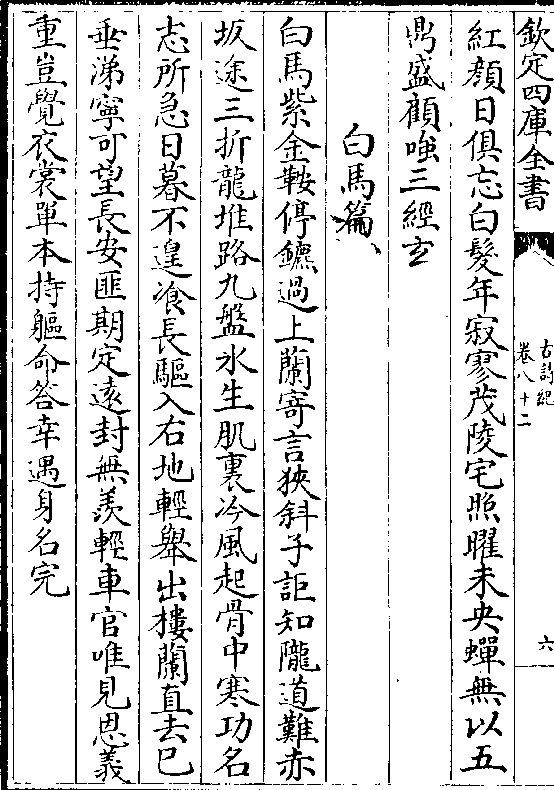 欽定四庫全書
古詩紀
卷八十二
六
紅顔日俱忘白髮年寂寥茂陵宅照曜未央蟬無以五
鼎盛顧嗤三經玄
白馬篇
白馬紫金鞍停鑣過上蘭寄言狹斜子詎知隴道難赤
坂途三折龍堆路九盤氷生肌裏冷風起骨中寒功名
志所急日暮不遑飡長驅入右地輕舉出樓蘭直去已
垂涕寧可望長安匪期定遠封無羨輕車官唯見恩義
重豈覺衣裳單本持軀命答幸遇身名完